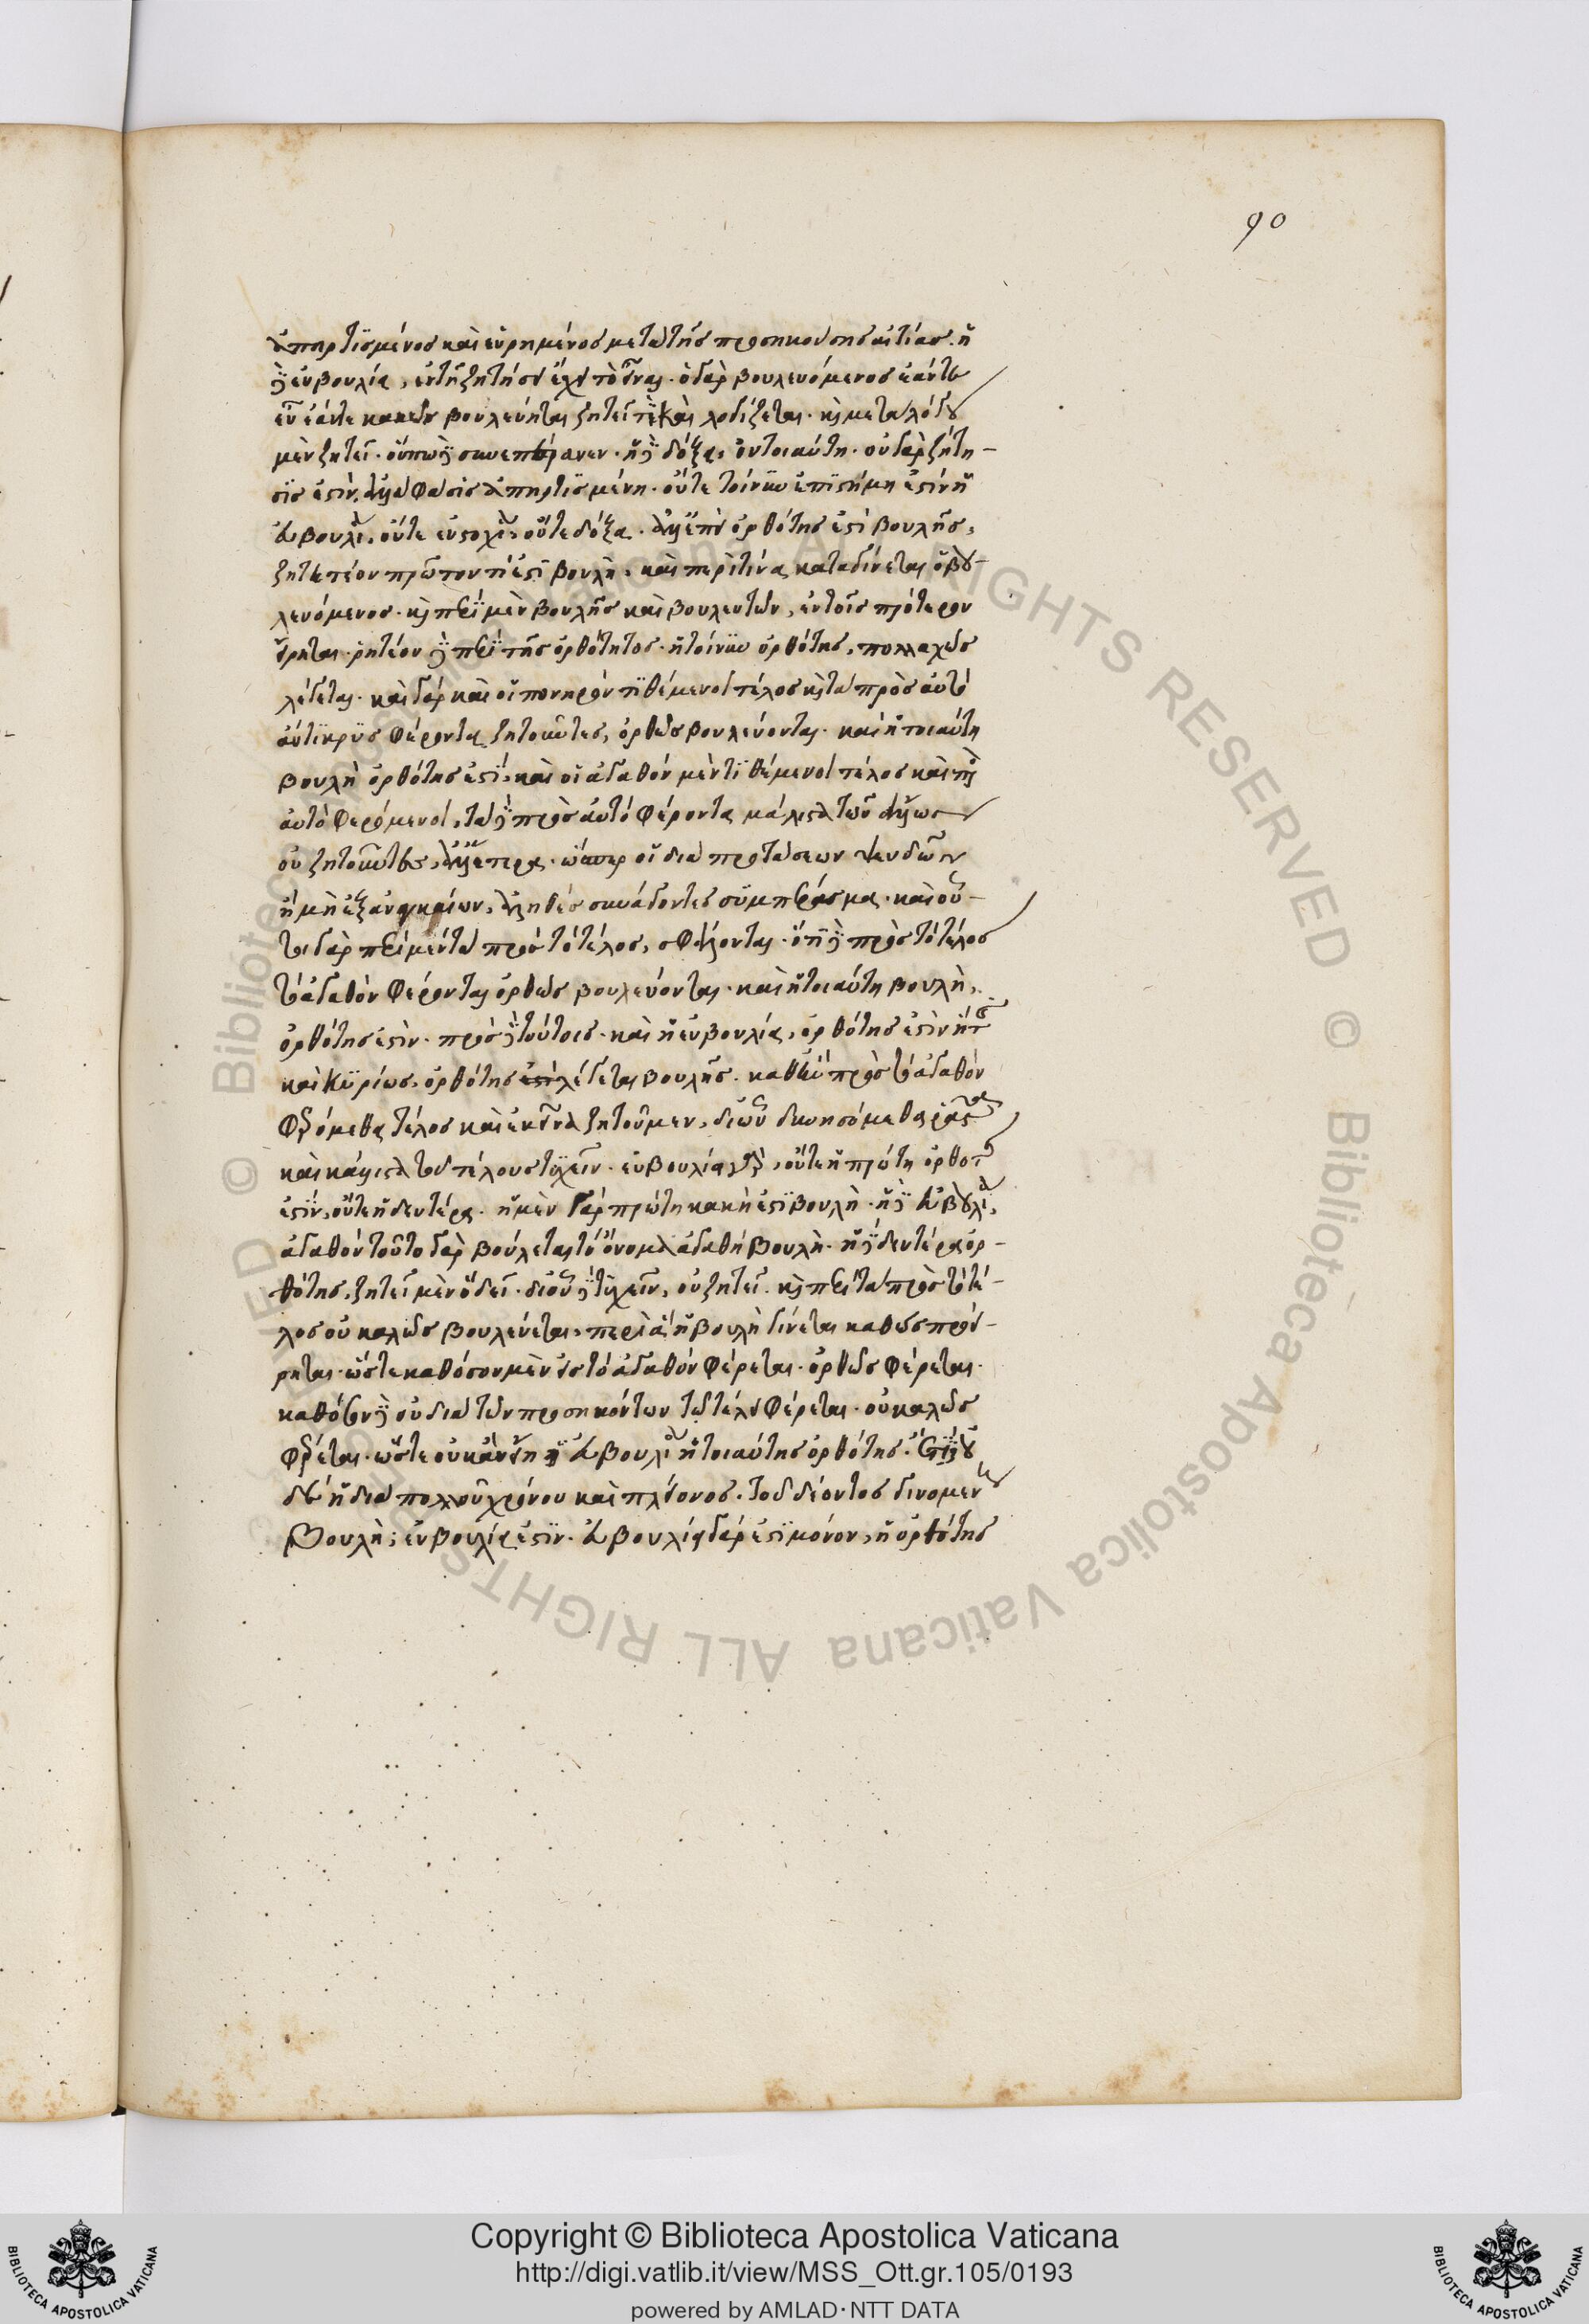 90
ἀπηρτισμένος καὶ εὑρημένος μετὰ τῆς προσηκούσης αἰτίας. ἡ
δὲ εὐβουλία, ἐν τῇ ζητήσει ἔχει τὸ εἶναι. ὁ γὰρ βουλευόμενος ἐάν τε
εὖ ἐάν τε κακῶς βουλεύηται ζητεῖ τὲ καὶ λογίζεται. καὶ μετὰ λόγου
μὲν ζητεῖ. οὔπω δὲ συνεπέρανεν. ἡ δὲ δόξα, οὐ τοιαύτη. οὐ γὰρ ζήτη-
σϊς ἐστὶν, ἀλλὰ φάσις ἀπηρτισμένη. οὔτε τοίνυν ἐπϊστήμη ἐστίν ἡ
εὐβουλία, οὔτε εὐστοχία, οὔτε δόξα. ἀλλ' ἐπεὶ ὀρθότης ἐστὶ βουλῆς,
ζητητέον πρῶτον τί ἐστϊ βουλὴ, καὶ περὶ τίνα καταγίνεται ὁ βου-
λευόμενος. καὶ περὶ μὲν βουλῆς καὶ βουλευτῶν, ἐν τοῖς πρότερον
εἴρηται. ῥητέον δὲ περὶ τῆς ὀρθότητος. ἡ τοίνυν ὀρθότης, πολλαχῶς
λέγεται. καὶ γὰρ καὶ οἱ πονηρόν τϊθέμενοι τέλος καὶ τὰ πρὸς αὐτὸ
ἀντϊκρϋς φέροντα ζητοῦντες, ὀρθῶς βουλεύονται. καὶ ἡ τοιαύτη
βουλὴ ὀρθότης ἐστϊ, καὶ οἱ ἀγαθὸν μὲν τϊθέμενοι τέλος καὶ πρὸς
αὐτὸ φερόμενοι, τὰ δὲ πρὸς αὐτό φέροντα μάλιστα τῶν ἄλλων
οὐ ζητοῦντες, ἀλλ' ἕτερα. ὥσπερ οἱ διὰ προτάσεων ψευδῶν
ἢ μὴ ἐξ ἀναγκαίων, ἀληθὲς συνάγοντες συμπέρασμα. καὶ οὗ-
τοι γὰρ περὶ μὲν τὰ πρὸς τὸ τέλος, σφάλλονται. ὅτι δὲ πρὸς τὸ τέλος
τὸ ἀγαθὸν φέρονται ὀρθῶς βουλεύονται. καὶ ἡ τοιαύτη βουλὴ,
ὀρθότης ἐστὶν. πρὸς δὲ τούτοις. καὶ ἡ εὐβουλία, ὀρθότης ἐστὶν ἥτις
καὶ κϋρίως, ὀρθότης λέγεται βουλῆς. καθ' ἣν πρὸς τὸ ἀγαθὸν
φερόμεθα τέλος καὶ ἐκεῖνα ζητοῦμεν, δι' ὧν δυνησόμεθα ῥᾷστα
καὶ κάλλιστα τοῦ τέλους τυχεῖν. εὐβουλία δὲ, οὔτε ἡ πρώτη ὀρθότης
ἐστϊν, οὔτε ἡ δευτέρα. ἡ μὲν γὰρ πρώτη κακή ἐστϊ βουλὴ. ἡ δὲ εὐβουλία,
ἀγαθόν τοῦτο γὰρ βούλεται τὸ ὄνομα ἀγαθὴ βουλὴ. ἡ δὲ δευτέρα ὀρ-
θότης, ζητεῖ μὲν ὃ δεῖ. δι' οὗ δὲ τυχεῖν, οὐ ζητεῖ. καὶ περὶ τὰ πρὸς τὸ τέ-
λος οὐ καλῶς βουλεύεται, περὶ ἃ ἡ βουλὴ γίνεται καθὼς προεί-
ρηται. ὥστε καθόσον μὲν εἰς τὸ ἀγαθὸν φέρεται. ὀρθῶς φέρεται.
καθόσον δὲ οὐ διὰ τῶν προσηκόντων τῷ τέλει φέρεται. οὐ καλῶς
φέρεται. ὥστε οὐκ ἂν εἴη εὐβουλία ἡ τοιαύτης ὀρθότης. ἔτι δὲ οὐ
δὲ ἡ διὰ πολλοῦ χρόνου καὶ πλείονος. τοῦ δέοντος γινομένη
βουλὴ, εὐβουλία ἐστϊν. εὐβουλία γάρ ἐστϊ μόνον, ἡ ὀρθότης